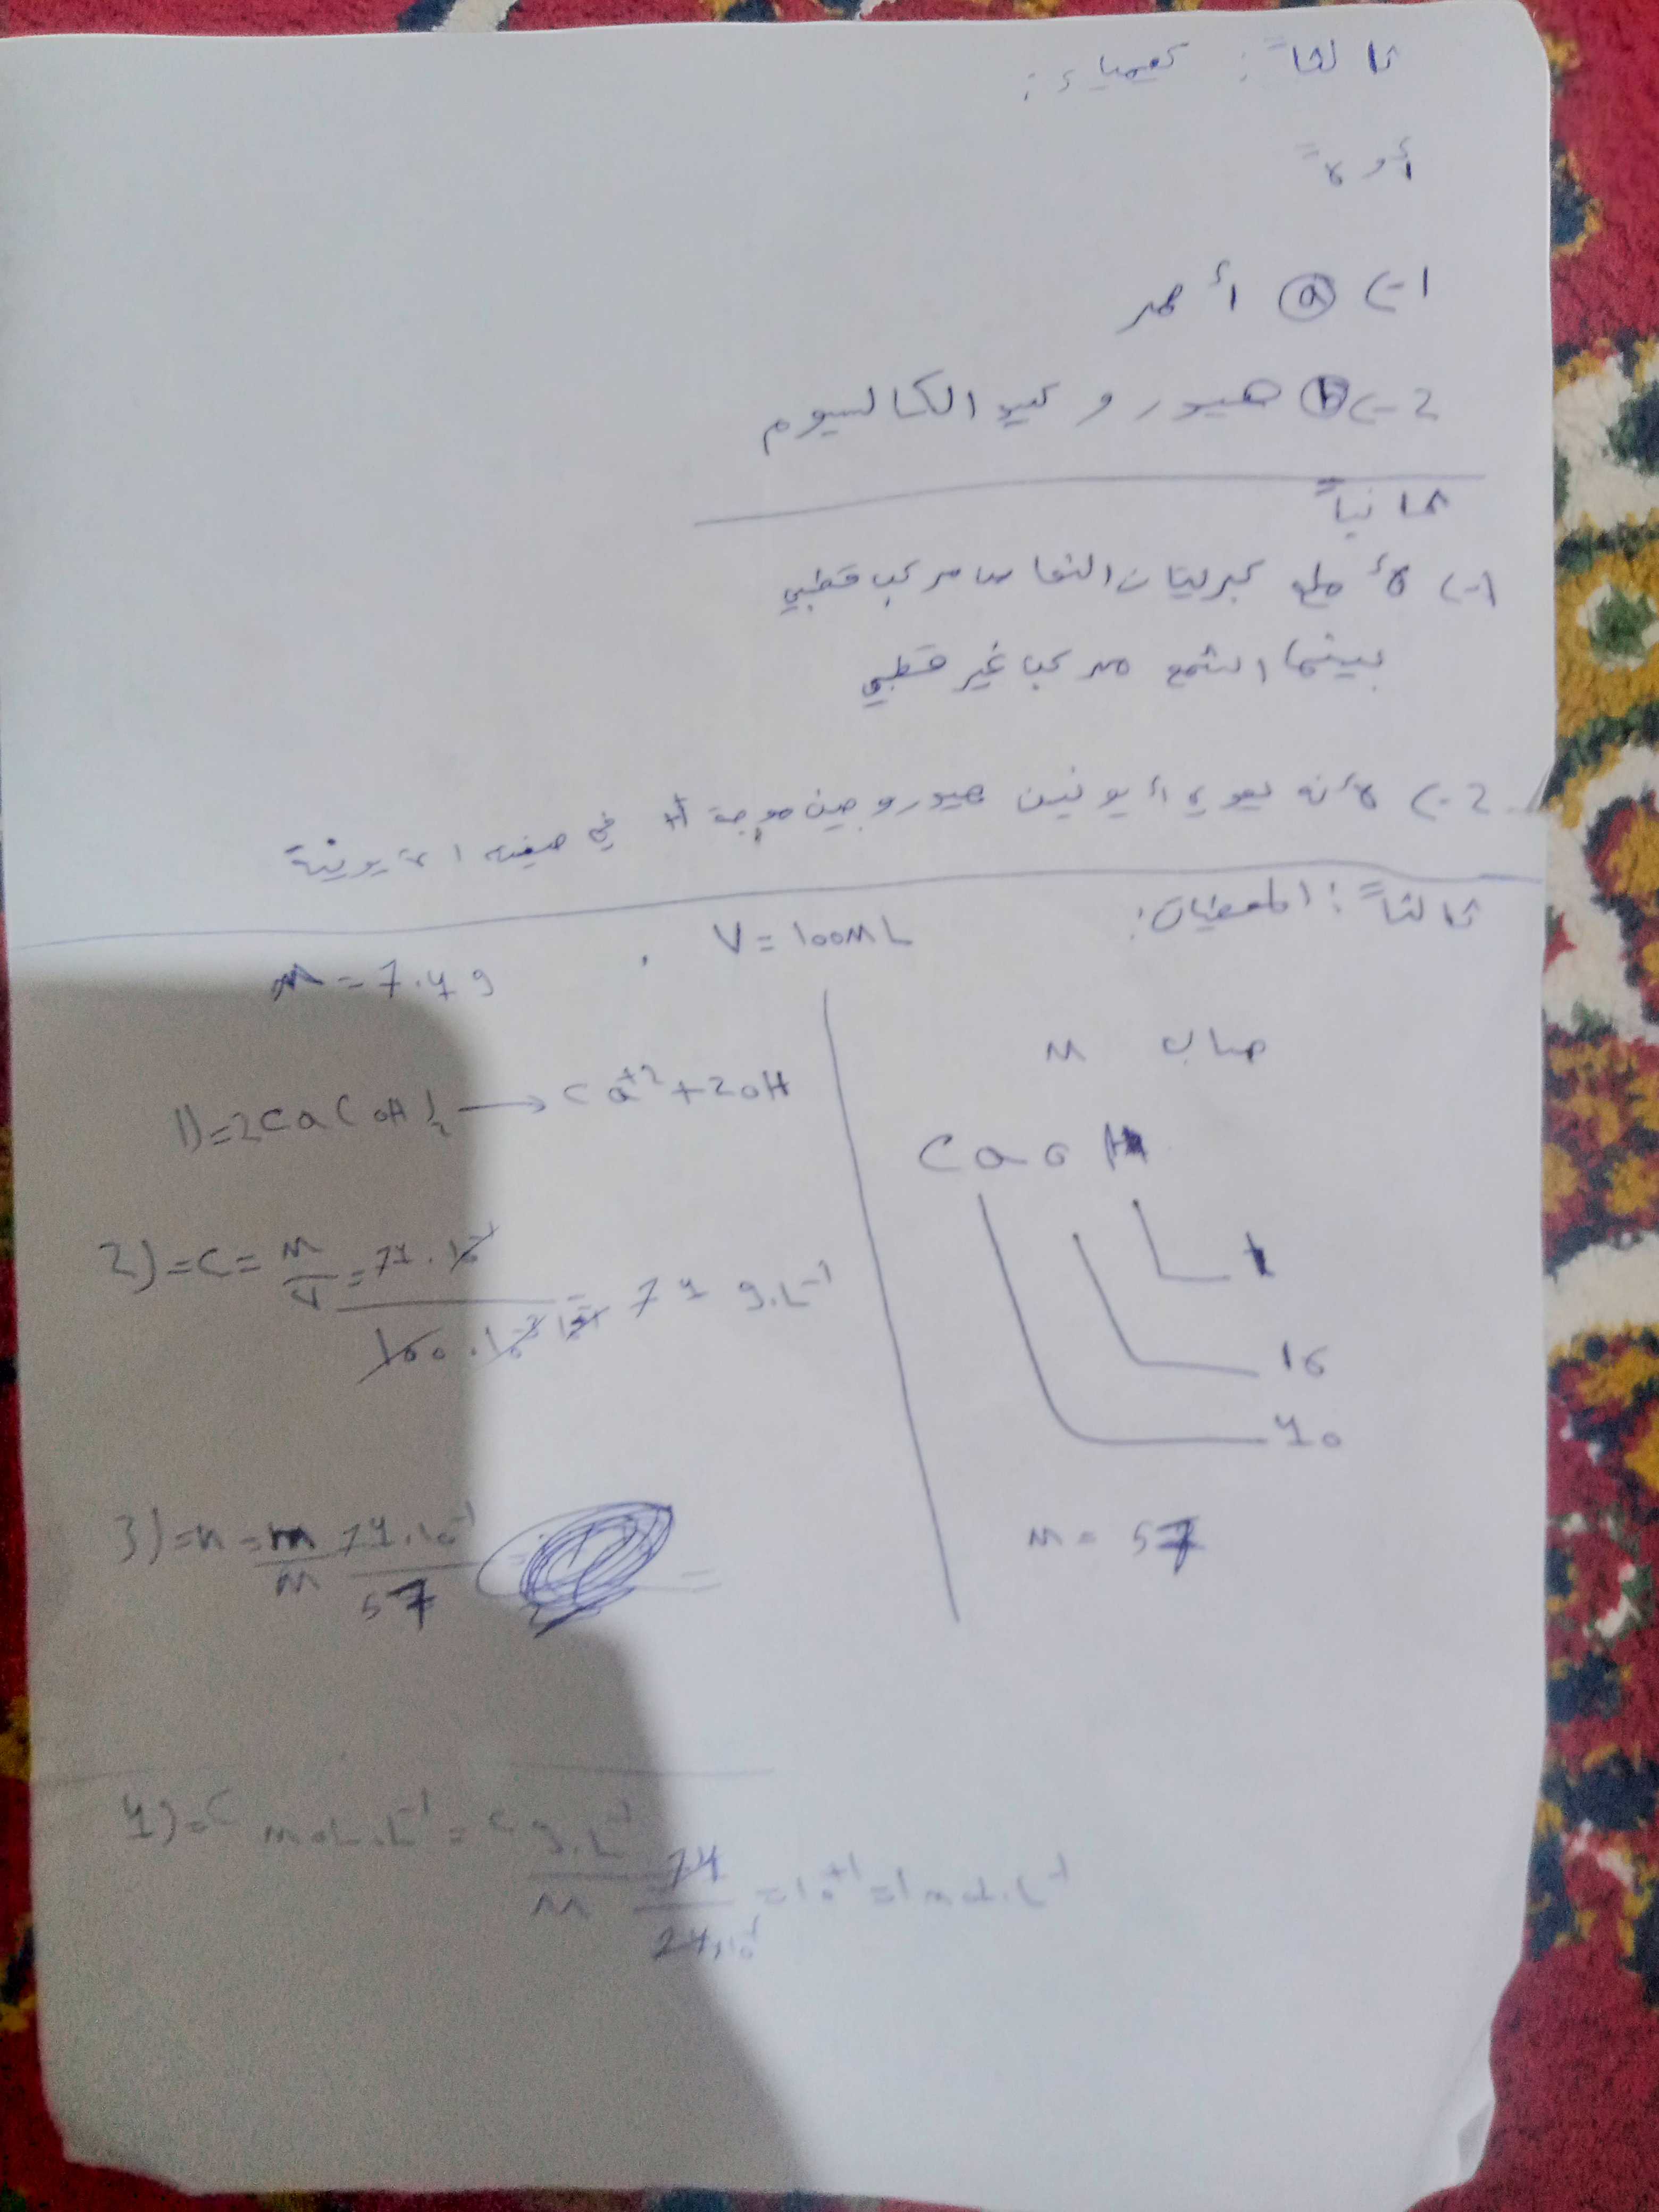 ثالثاً: كيمياء:
أولاً
1-) (a) أحمر
2-) (b) هيدروكسيد الكالسيوم
ثانياً
1-) لأ ملح كبريتات النحاس مركب قطبي
بينما الشمع مركب غير قطبي
2-) لأنه يحوي أيونين هيدروجين موجبة H+ في صيغته الأيونية
ثالثاً: المعطيات:
V = 100mL
m = 7.4 g
حساب M
CaOH
1
16
40
M = 57
1) = 2Ca(OH)2 → Ca+2 + 2OH
2) = C = m/V = 74.10-1 / 100.10-3 = 74 g.L-1
3) = n = m/M 74.10-1 / 57 =
4) = C mol.L-1 = C g.L-1 / M = 74 / 74×10-1 = 10+1 = 1 mol.L-1